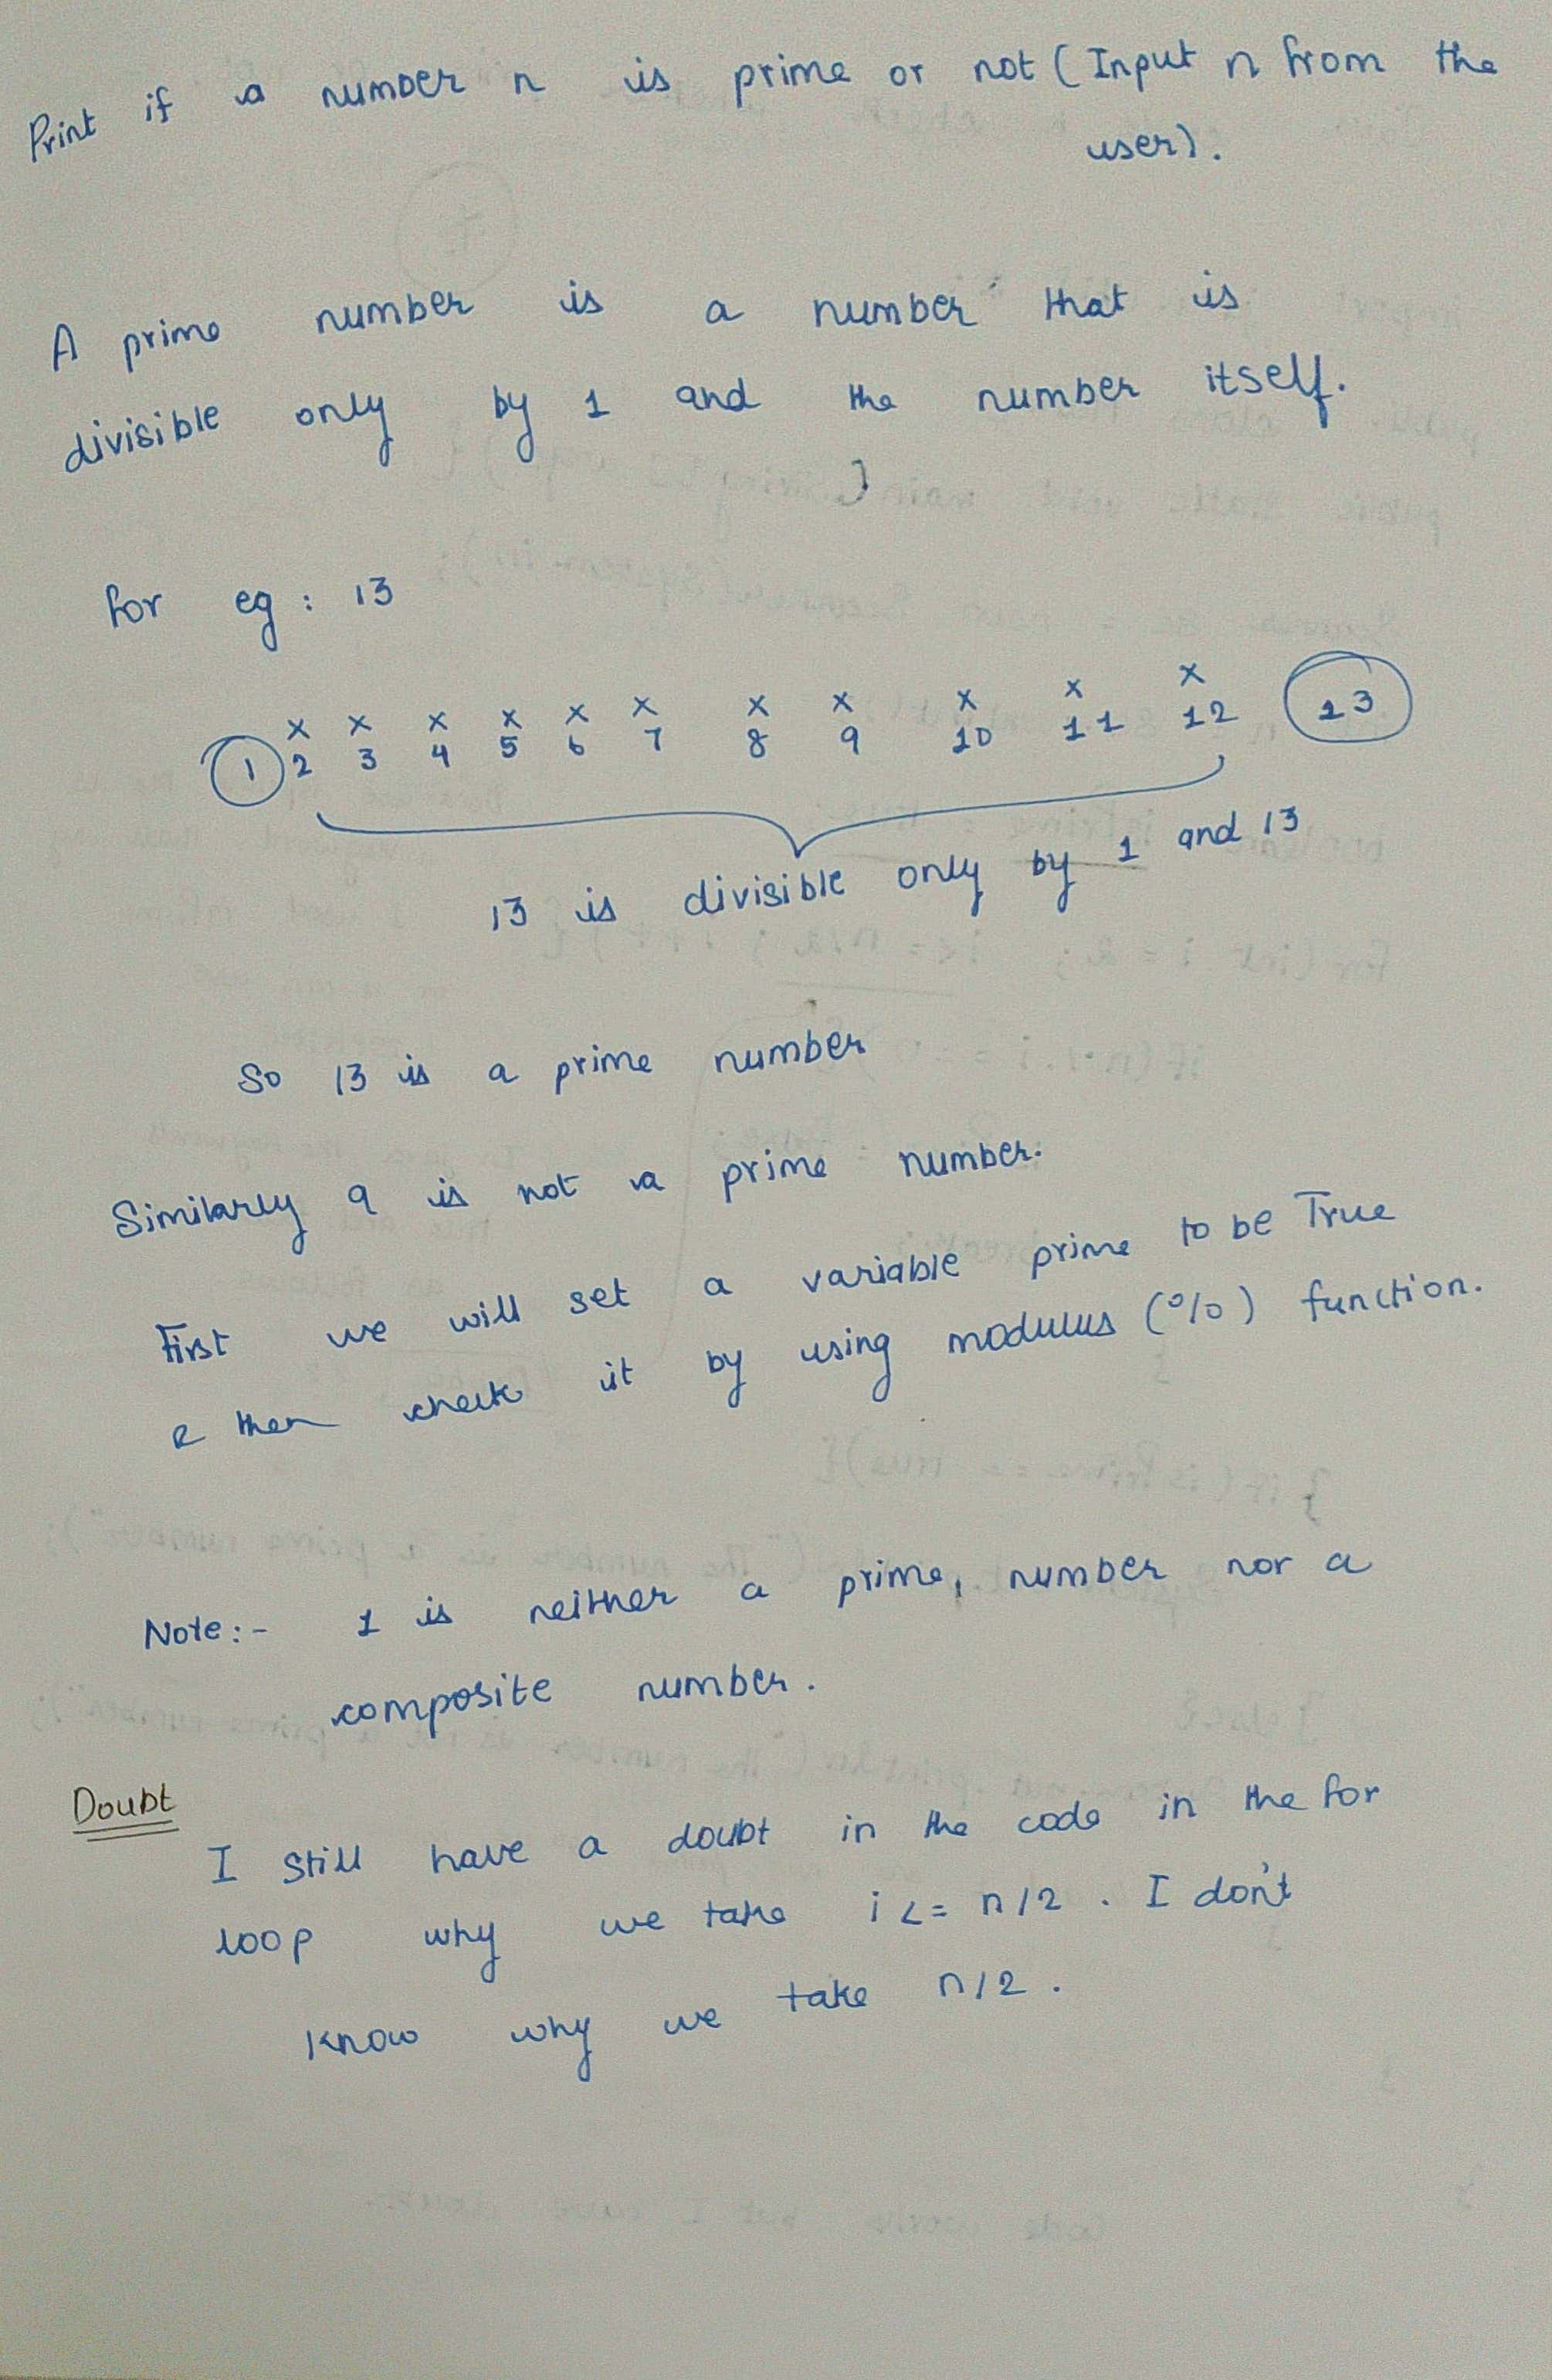 Print if a number n is prime or not (Input n from the
user).
A prime number is a number that is
divisible only by 1 and the number itself.
for eg : 13
x x x x x x x x x x x
1 2 3 4 5 6 7 8 9 10 11 12 13
13 is divisible only by 1 and 13
So 13 is a prime number
Similarly 9 is not a prime number.
First we will set a variable prime to be True
& then check it by using modulus (%) function.
Note:- 1 is neither a prime, number nor a
composite number.
Doubt
I still have a doubt in the code in the for
loop why we take i <= n/2 . I don't
know why we take n/2 .